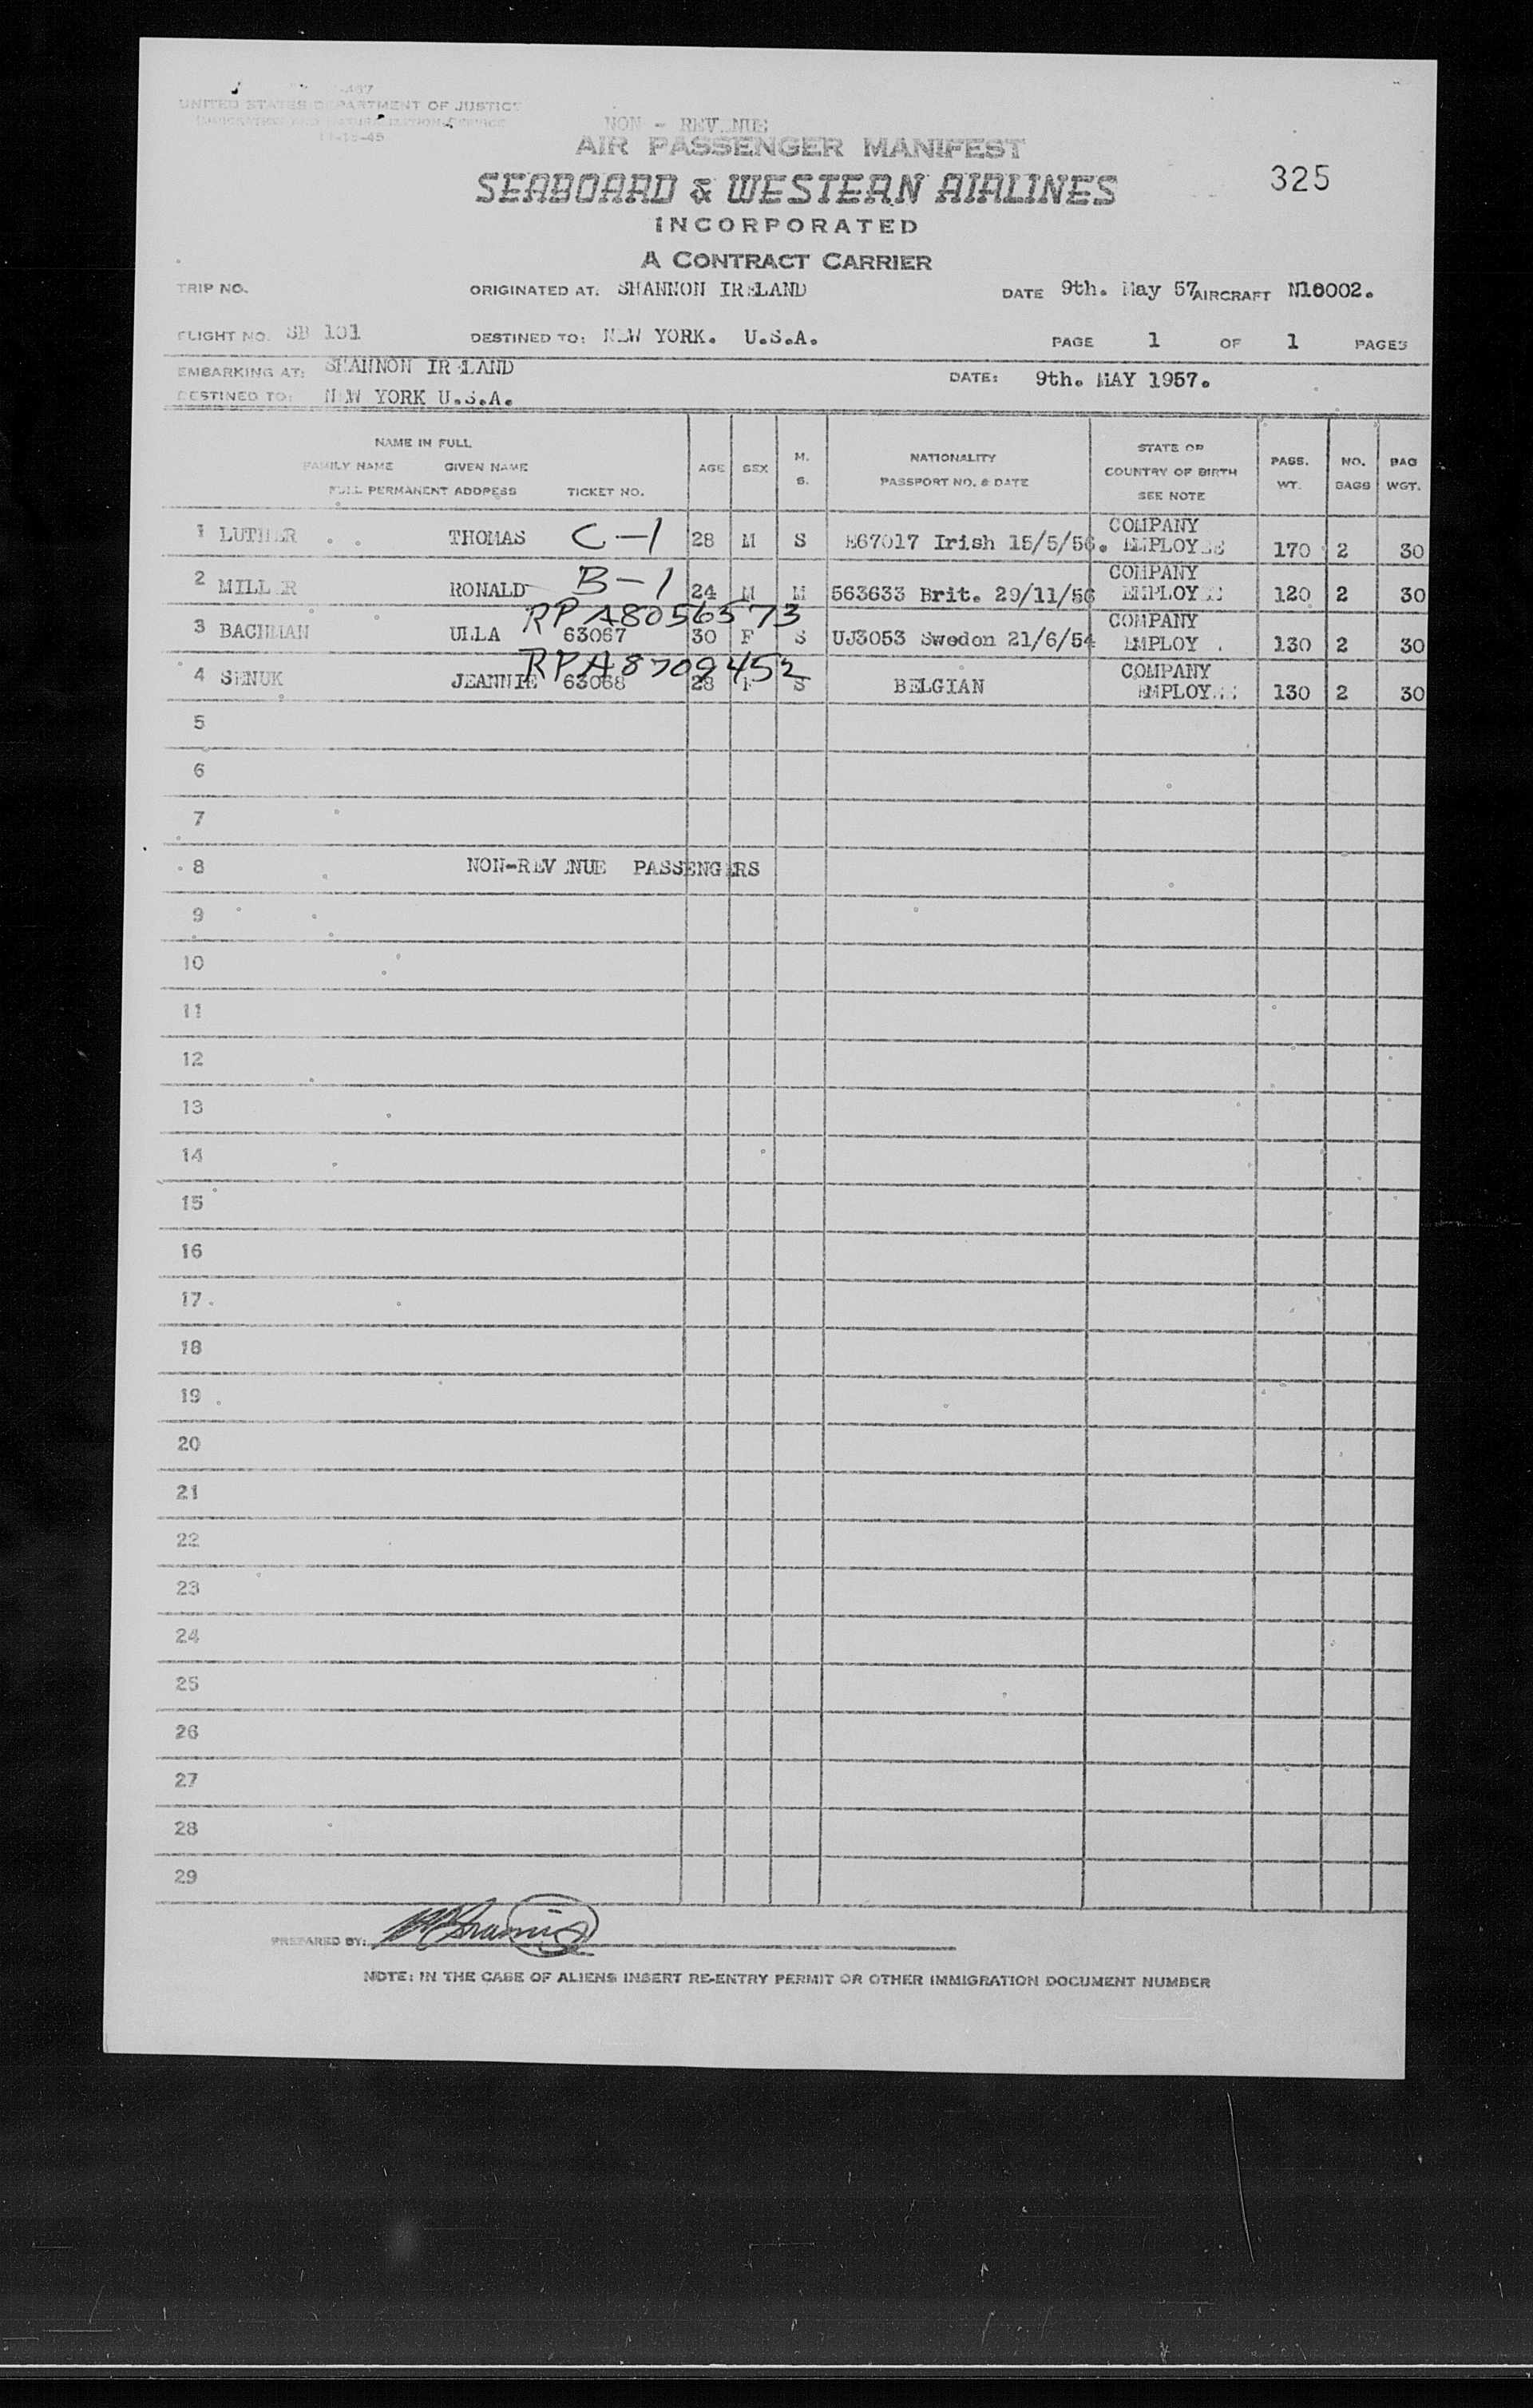 -467
UNITED STATES DEPARTMENT OF JUSTICE
IMMIGRATION AND NATURALIZATION SERVICE
NON - REV NUE
AIR PASSENGER MANIFEST
SEABOARD & WESTERN AIRLINES
325
INCORPORATED
A CONTRACT CARRIER
TRIP NO. ORIGINATED AT: SHANNON IRELAND DATE 9th. May 57 AIRCRAFT N10002.
FLIGHT NO. SB 101 DESTINED TO: NEW YORK. U.S.A. PAGE 1 OF 1 PAGES
EMBARKING AT: SHANNON IRELAND DATE: 9th. MAY 1957.
DESTINED TO: NEW YORK U.S.A.
NAME IN FULL
FAMILY NAME GIVEN NAME
FULL PERMANENT ADDRESS TICKET NO.
AGE SEX M. S.
NATIONALITY
PASSPORT NO. & DATE
STATE OR
COUNTRY OF BIRTH
SEE NOTE
PASS. WT.
NO. BAGS
BAG WGT.
1 LUTHER THOMAS C-1 28 M S E67017 Irish 15/5/56. COMPANY EMPLOYEE 170 2 30
2 MILLER RONALD B-1 24 M M 563633 Brit. 29/11/56 COMPANY EMPLOYEE 120 2 30
RPA8056573
3 BACHMAN ULLA 63067 30 F S UJ3053 Sweden 21/6/54 COMPANY EMPLOY . 130 2 30
RPA8709452
4 SENUK JEANNIE 63068 28 F S BELGIAN COMPANY EMPLOYEE 130 2 30
5
6
7
8 NON-REV NUE PASSENGERS
9
10
11
12
13
14
15
16
17
18
19
20
21
22
23
24
25
26
27
28
29
PREPARED BY:
NOTE: IN THE CASE OF ALIENS INSERT RE-ENTRY PERMIT OR OTHER IMMIGRATION DOCUMENT NUMBER